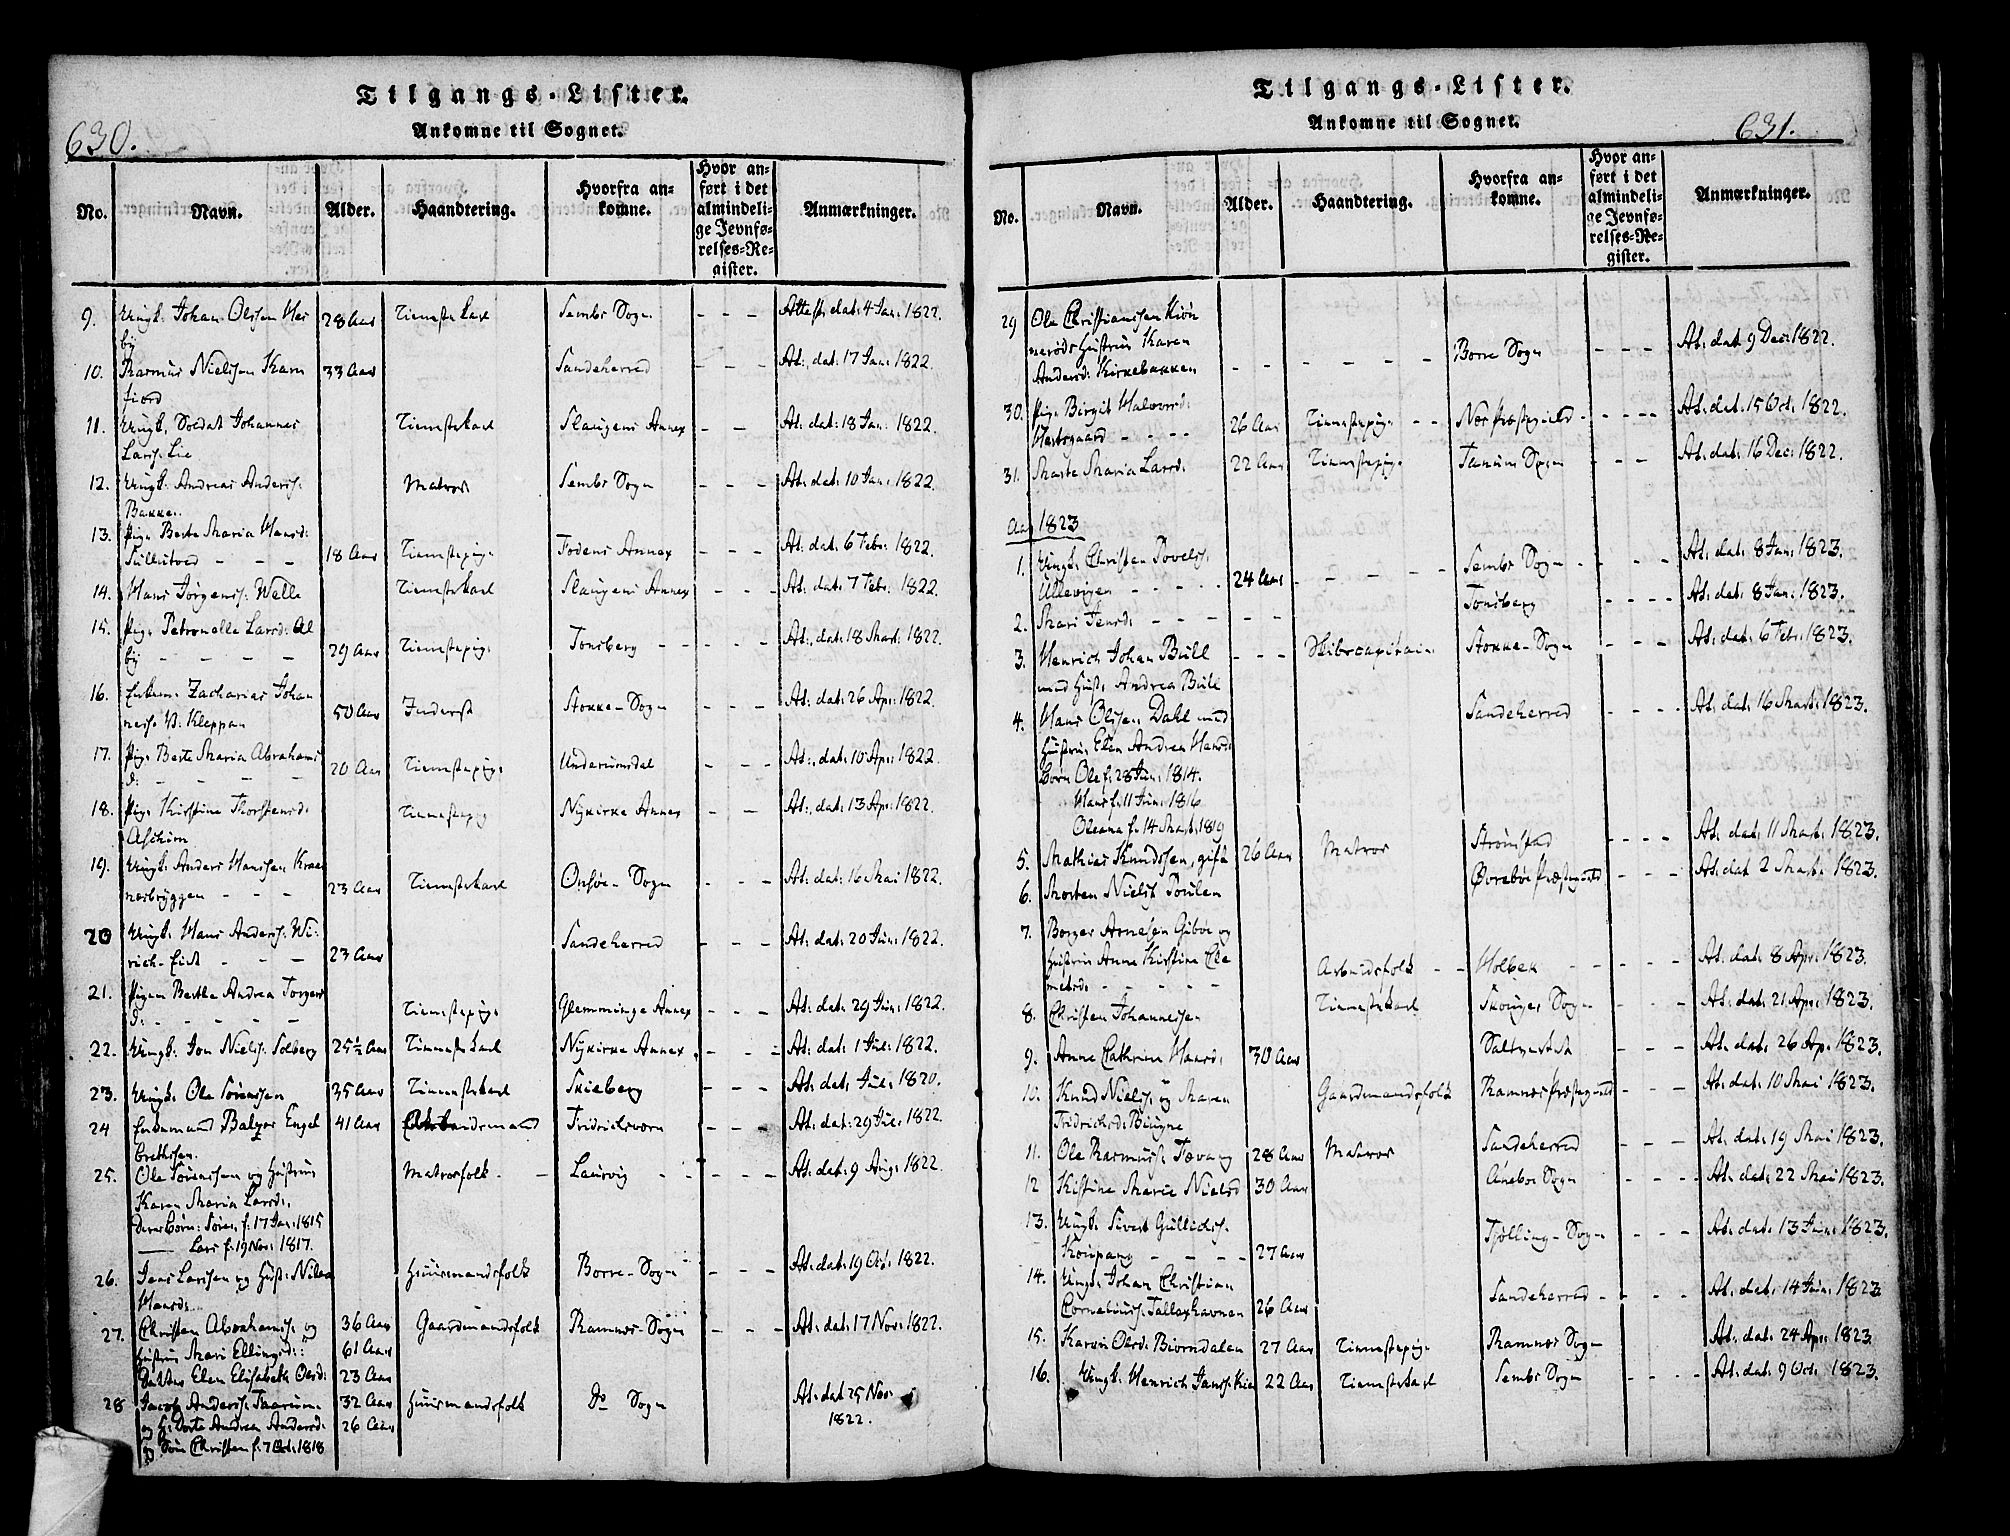 Tilgangs-Lister.
Ankomne til Sognet.
630.
No. Navn. Alder. Haandtering. Hvorfra ankomne. Hvor anført i det almindelige Jevnførelses-Register. Anmærkninger.
9. Ungk. Johan Olssen Hesby 28 Aar Tienestekarl Sembs Sogn - - - Attest. dat: 4 Jan: 1822.
10. Rasmus Nielssen Kamfiord 33 Aar Sandeherred - - - At: dat: 17 Jan: 1822.
11. Ungk. Soldat Johannes Larss. Lie Tienestekarl Slaugens Annex - - At: dat: 18 Jan: 1822.
12. Ungk. Andreas Anderss. Bakke. Matros Sembs Sogn - - - At: dat: 10 Jan: 1822.
13. Pig. Berte Maria Hansd: - - - 18 Aar Tienestepige Fodens Annex - - - At: dat: 6 Febr: 1822.
14. Hans Jørgenss: Welle Tienestekarl Slaugens Annex - - - At: dat: 7 Febr: 1822.
15. Pig. Petronelle Larsd: Alby - - - - 29 Aar Tienestepige Tønsberg - - - - At: dat: 18 Mart: 1822.
16. Enkem. Zacharias Johanness. Kleppan 50 Aar Inderst Stokke-Sogn - - - At: dat: 26 Apr: 1822.
17. Pig. Berte Maria Abrahamsd: - - - - 20 Aar Tienestepige Underumsdal - - - At: dat: 10 Apr: 1822.
18. Pige Kirstine Thorstensd: Aschiem Tienestepig Nykirke Annex - - At: dat: 13 Apr: 1822.
19. Ungk. Anders Hanssen - - - 23 Aar Tienestekarl Onsøe-Sogn - - - At: dat: 16 Mai 1822.
20 Ungk. Hans Anderss: Wirich-Eid - - - 23 Aar Sandeherred - - - At: dat: 20 Jun: 1822.
21. Pigen Berthe Andrea Torgersd: - - - - Tienestepige Glemminge Annex - - - At: dat: 29 Jun: 1822.
22. Ungk: Jon Nielss: Solberg 25½ Aar Tienestekarl Nykirke Annex - - - At: dat: 1 Jul: 1822.
23. Ungk: Ole Sørenssen 35 Aar Tienestekarl Skieberg - - - At: dat: Jul: 1820.
24 Enkemand Balzer Engelbrethssen. 41 Aar Fridrichsværn - - - At: dat: 29 Jul: 1822.
25. Ole Sørenssen og Hustrue Matrosfolk - - Laurvig - - - - - At: dat: 9 Aug: 1822.
Karen Maria Larsd:
Deres Børn: Søren f. 17 Jan: 1815
Lars f. 19 Nov: 1817.
26. Jens Larssen og Hust: Hansd: Huusmandsfolk Borre-Sogn - - - At: dat: 19 Oct: 1822.
27. Christen Abrahamss: og 36 Aar Gaardmandsfolk Ramnæs-Sogn - - - At: dat: 17 Nov: 1822.
Hustrue Mari Ellingsd: 61 Aar
Datter Elen Elisabeth Olsd: 23 Aar
28 Jacob Anderss: Taarum 32 Aar Huusmandsfolk Do Sogn At: dat 25 Nov 1822.
og H: Dorte Andrea Andersd: 26 Aar
og Søn Christen f: 7 Oct: 1818
Tilgangs-Lister.
Ankomne til Sognet.
631.
No. Navn. Alder. Haandtering. Hvorfra ankomne. Hvor anført i det almindelige Jevnførelses-Register. Anmærkninger.
29 Ole Christianssen Kiønnerøds Hustrue Karen Andersd: Kirkebakken - - - - - - Borre Sogn - - - At: dat 9 Dec: 1822.
30. Pig. Birgit Halvorsd: - - - - 26 Aar Tienestepige - - Næs Præstegield - - - - At: dat. 15 Oct: 1822.
31. Marte Maria Larsd: 22 Aar Tienestepige Tanum Sogn - - - At: dat: 16 Dec: 1822.
Aar 1823
1. Ungk. Christen Povelss: Ullevigen - - - - 24 Aar - - - - - Sembs Sogn - - - - At: dat: 8 Jan: 1823.
2. Mari Jensd: - - - - - Tønsberg - - - - At: dat: 8 Jan: 1823.
3. Henrich Johan Bull med Hust: Andrea Bull - - - Skibscapitain Stokke-Sogn - - - At: dat: 6 Febr: 1823.
4. Hans Olssen Dahl med Sandeherred - - - - At: dat: 16 Mart: 1823.
Hustrue Elen Andrea Hansd:
Børn Ole f. 28 Jun: 1814.
Hans f. 11 Jun: 1816
Oleana f. 14 Mart: 1819
5. Mathias Knudssen, gift 26 Aar Matros Strømstad - - - At: dat: 11 Mart: 1823.
6. Morten Nielss Poulen Øvrebøe Præstegield - - - At: dat 2 Mart: 1823.
7. Borger Arnesen Gibøe og Hustrue Anne Kirstine Clemetsd: - - - - - Arbeidsfolk - - Holbek - - - - - At: dat: 8 Apr: 1823.
8. Christen Johannessen Tienestekarl Skouger Sogn - - - At: dat: 21 Apr: 1823.
9. Anne Cathrine Hansd: 30 Aar - - - At: dat: 26 Ap: 1823.
10. Knud Nielss: og Maren Fridrichsd: Gaardmandsfolk Ramnæs Præstegield - - - At: dat: 10 Mai 1823.
11. Ole Rasmuss: 28 Aar Matros Sandeherred - - - At: dat: 19 Mai 1823.
12 Kistine Marie Nielsd 30 Aar Aneboe Sogn - - - - At: dat: 22 Mai 1823.
13. Ungk. Sivert Gullichss: Koupang - - - - 27 Aar Tjølling-Sogn - - - At: dat: 13 Jun: 1823.
14. Ungk. Johan Christian Corneliuss: Tallaxhavnen 26 Aar Sandeherred - - - - At: dat: 14 Jun: 1823
15. Karen Olsd: Biørndalen 27 Aar Tienestepige Ramnæs Sogn At: dat: 24 Apr: 1823.
16. Ungk. Henrich Janss: 22 Aar Tienestekarl Sembs Sogn - - - - At: dat: 9 Oct: 1823.